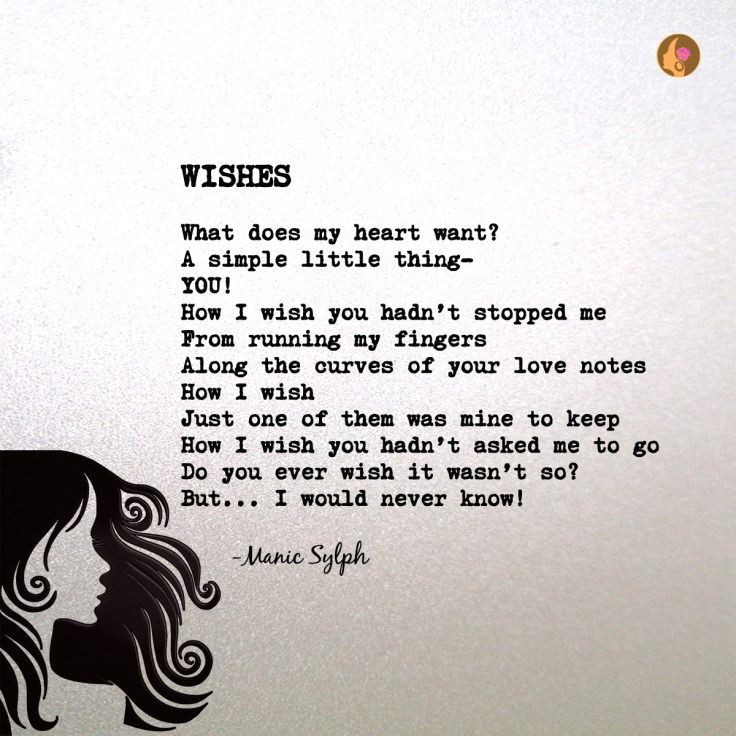 WISHES
What does my heart want?
A simple little thing-
YOU!
How I wish you hadn't stopped me
From running my fingers
Along the curves of your love notes
How I wish
Just one of them was mine to keep
How I wish you hadn't asked me to go
Do you ever wish it wasn't so?
But... I would never know!
-Manic Sylph